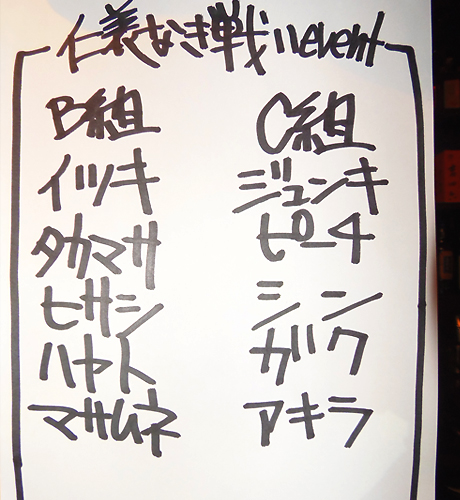 仁義なき戦い event
B組
イツキ
タカマサ
ヒサシ
ハヤト
マサムネ
C組
ジュンキ
ピーチ
シン
ガク
アキラ